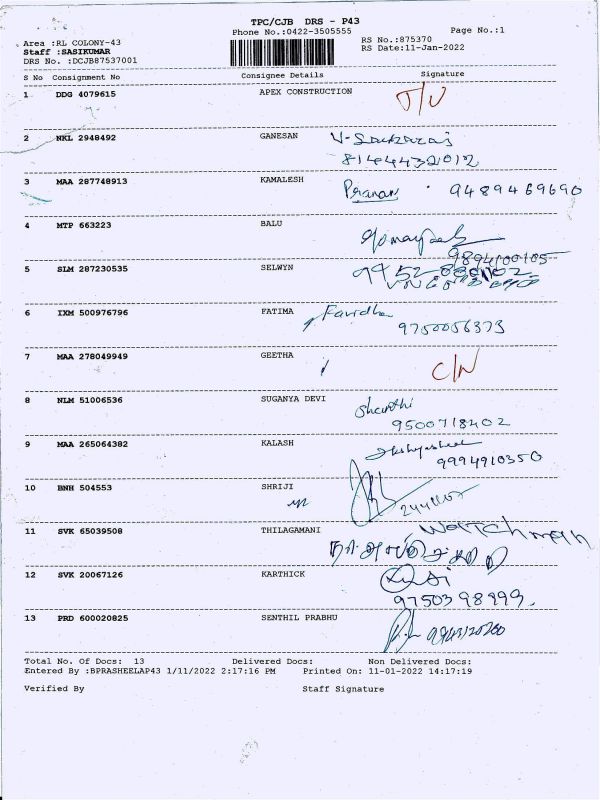 TPC/CJB DRS - P43
Phone No.:0422-3505555
Page No.:1
Area :RL COLONY-43
RS No.:875370
Staff :SASIKUMAR
RS Date:11-Jan-2022
DRS No. :DCJB87537001
S No Consignment No Consignee Details Signature
1 DDG 4079615 APEX CONSTRUCTION
2 NKL 2948492 GANESAN
3 MAA 287748913 KAMALESH Pranav 9489469690
4 MTP 663223 BALU
9894100105
5 SLM 287230535 SELWYN
6 IXM 500976796 FATIMA Faridha
9750056373
7 MAA 278049949 GEETHA C/N
8 NLM 51006536 SUGANYA DEVI Shanthi
9500718402
9 MAA 265064382 KALASH
9994910350
10 BNH 504553 SHRIJI
11 SVK 65039508 THILAGAMANI Watchman
12 SVK 20067126 KARTHICK
9750398999.
13 PRD 600020825 SENTHIL PRABHU
Total No. Of Docs: 13 Delivered Docs: Non Delivered Docs:
Entered By :BPRASHEELAP43 1/11/2022 2:17:16 PM Printed On: 11-01-2022 14:17:19
Verified By Staff Signature